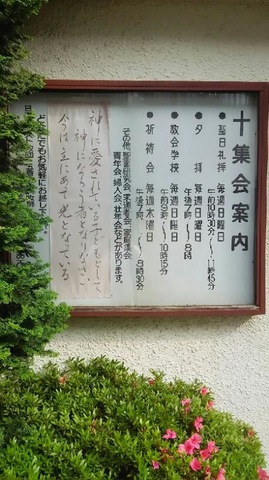 十集会案内
●聖日礼拝 毎週日曜日
午前10時30分〜11時45分
●夕拝 毎週日曜日
午後7時〜8時
●教会学校 毎週日曜日
午前9時〜10時15分
●祈祷会 毎週木曜日
午後7時〜8時30分
その他、聖書研究会、家庭集会
青年会、婦人会、壮年会などがあります。
どなたでもお気軽にお越し下さい。
神に愛されている子どもとして、
神にならう者となりなさい。
今は主にあって光となっている。